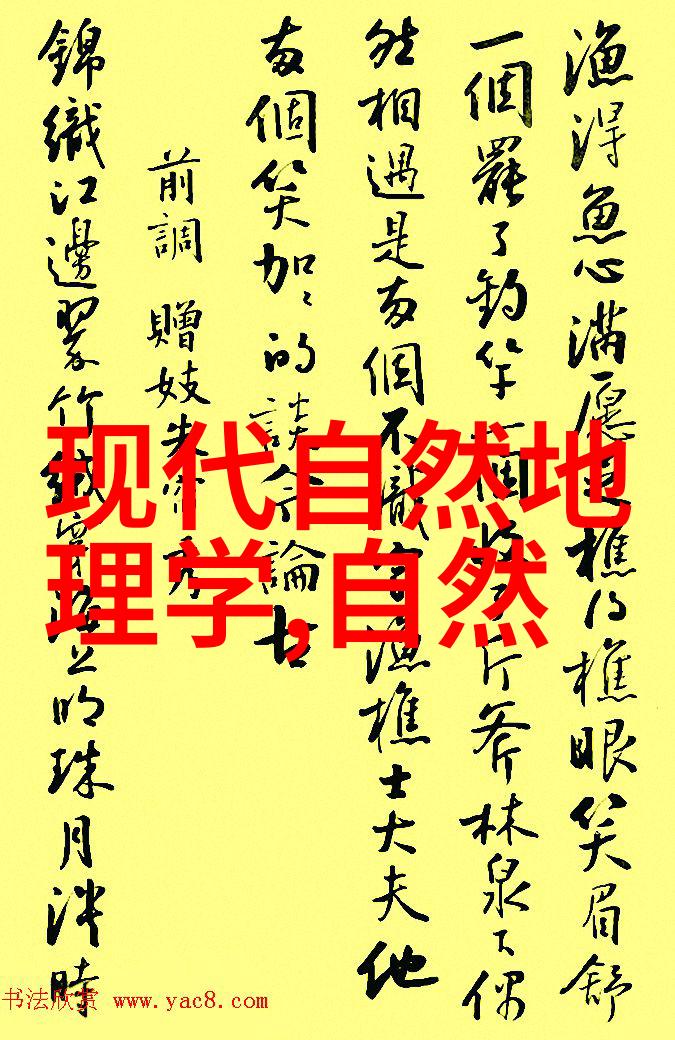 渔得魚心满愿足樵得樵眼笑眉舒
一個罷了釣竿一個收了斤斧林泉下偶
然相遇是两個不識字漁樵士大夫他
两個笑加加的談今論古
前調 贈妓朱帘秀
錦織江邊翠竹絨穿海上明珠月淡時
现代自然地
理学,自然
书法欣赏 www.yac8.com